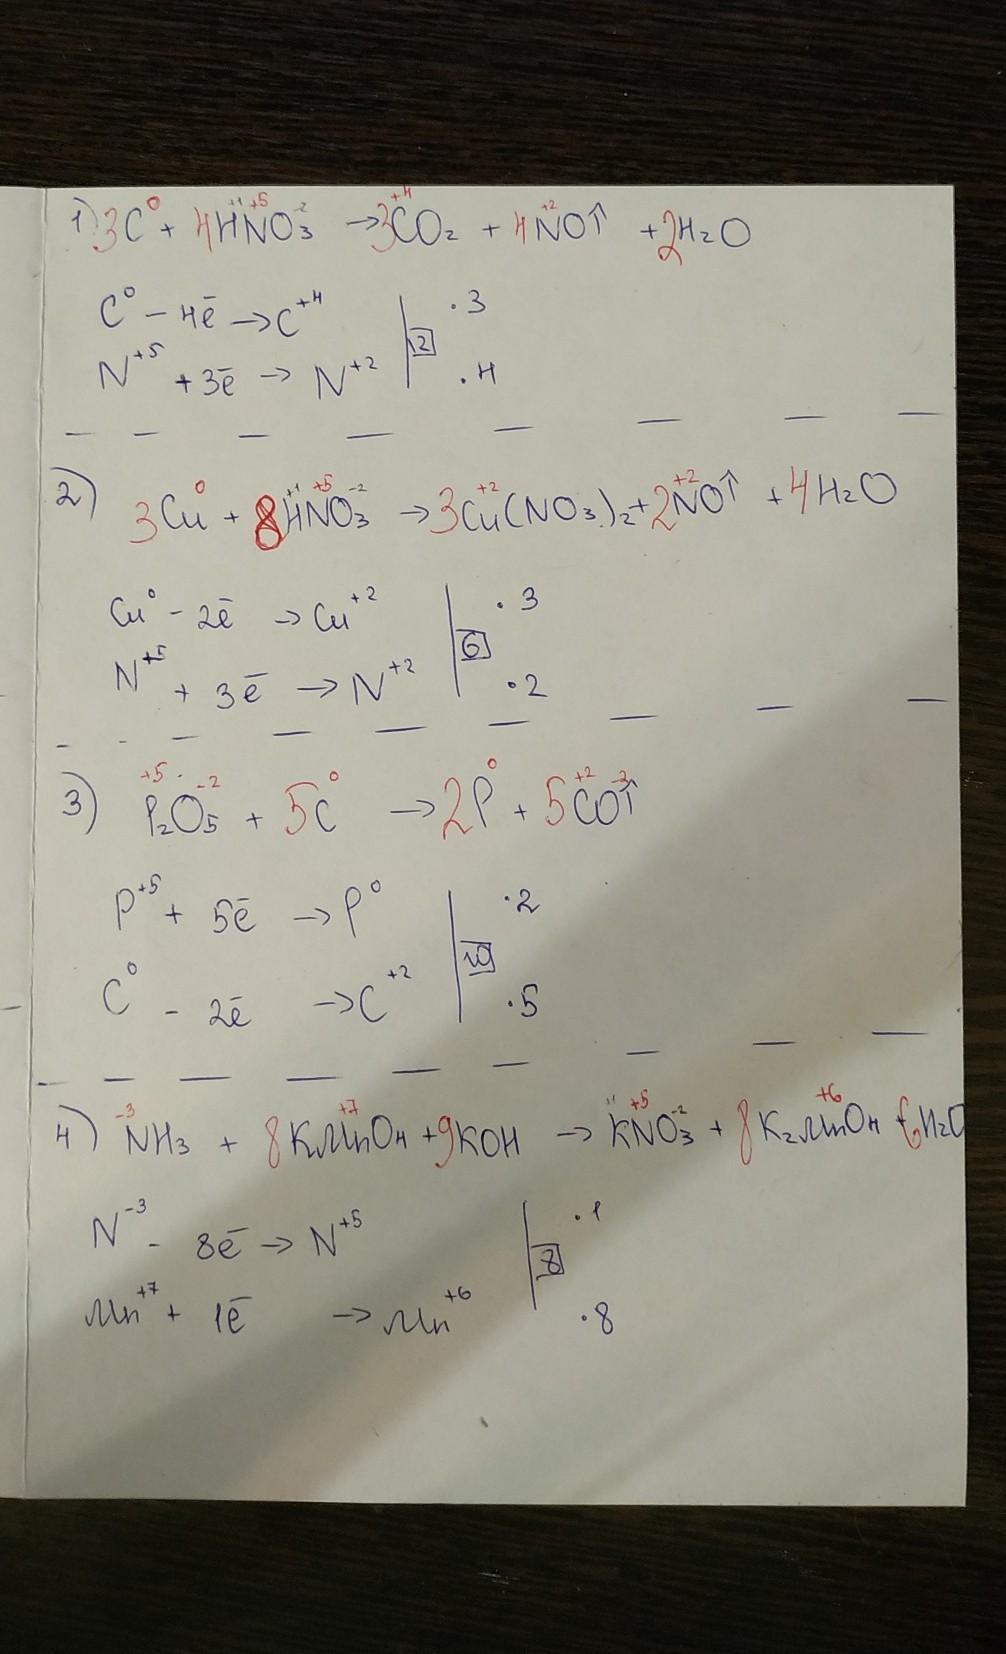 1) 3C⁰ + 4H⁺¹N⁺⁵O₃⁻² → 3C⁺⁴O₂ + 4N⁺²O↑ + 2H₂O
C⁰ - 4ē → C⁺⁴ | · 3
12
N⁺⁵ + 3ē → N⁺² | · 4
2) 3Cu⁰ + 8H⁺¹N⁺⁵O₃⁻² → 3Cu⁺²(NO₃)₂ + 2N⁺²O↑ + 4H₂O
Cu⁰ - 2ē → Cu⁺² | · 3
6
N⁺⁵ + 3ē → N⁺² | · 2
3) P₂⁺⁵O₅⁻² + 5C⁰ → 2P⁰ + 5C⁺²O⁻²↑
P⁺⁵ + 5ē → P⁰ | · 2
10
C⁰ - 2ē → C⁺² | · 5
4) N⁻³H₃ + 8KMn⁺⁷O₄ + 9KOH → K⁺¹N⁺⁵O₃⁻² + 8K₂Mn⁺⁶O₄ + 6H₂O
N⁻³ - 8ē → N⁺⁵ | · 1
8
Mn⁺⁷ + 1ē → Mn⁺⁶ | · 8